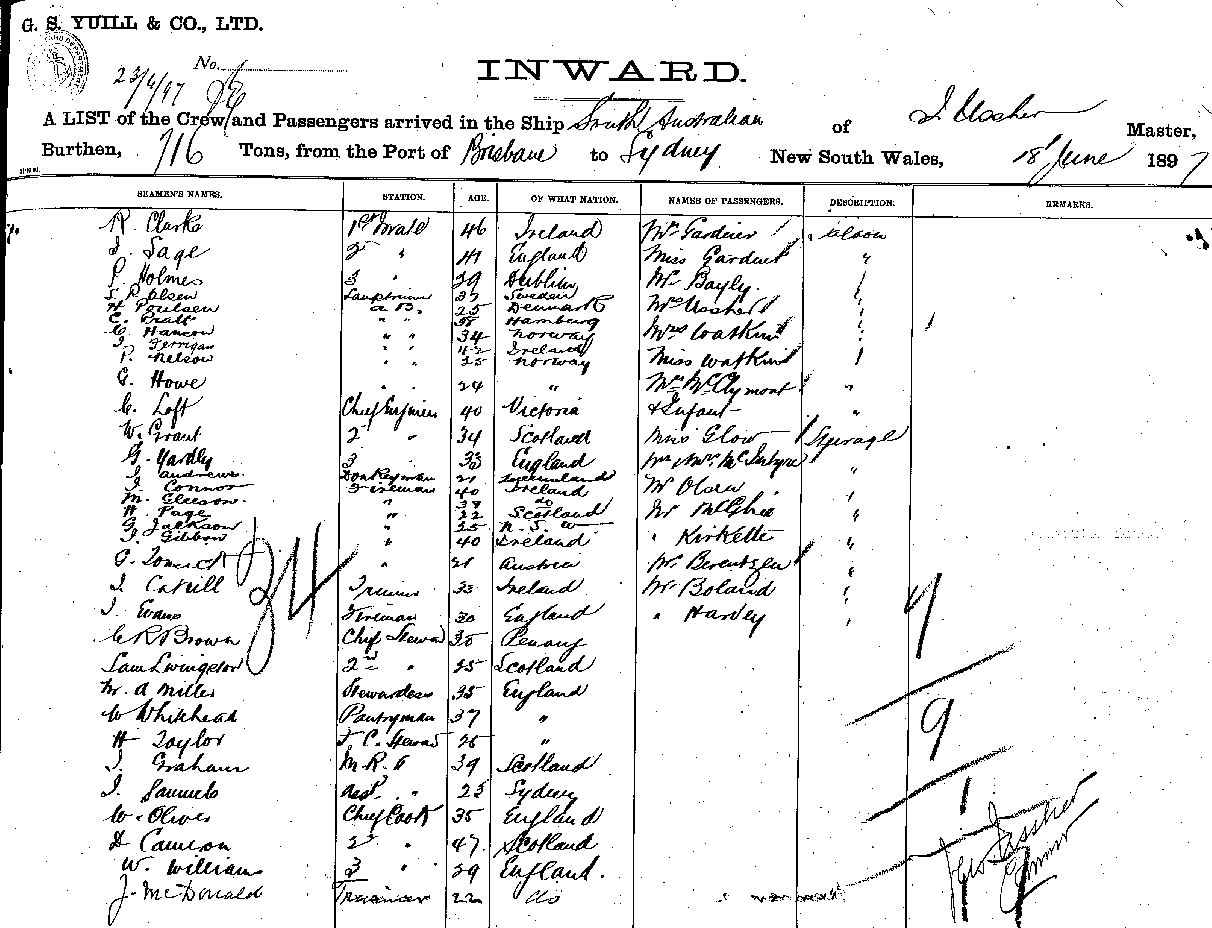 G. S. YUILL & CO., LTD.
23/6/97
No.
INWARD.
A LIST of the Crew and Passengers arrived in the Ship South Australian of J Ussher Master,
Burthen, 716 Tons, from the Port of Brisbane to Sydney New South Wales, 18 June 1897
SEAMEN'S NAMES. STATION. AGE. OF WHAT NATION. NAMES OF PASSENGERS. DESCRIPTION. REMARKS.
R. Clarke 1st Mate 46 Ireland Mr Gardner
J. Sage 2 " England Miss Gardner "
P. Holmes 3 " 29 Dublin Mr Bayly
S. P. Olsen 37 Sweden
H. Poulsen a B. 25 Denmark Mr Ussher
C. Pratt " " 38 Hamburg
C. Hanson " " 34 Norway Mrs Watkins
J. Ferrigan " " 42 Ireland
P. Nelson " " 25 Norway Miss Watkins
G. Howe " " 24 " Mrs McClymont "
C. Loft Chief Engineer 40 Victoria & Infant "
W. Grant 2 " 34 Scotland Miss Glow Steerage
G. Yardly 3 " 33 England Mr & Mrs McIntyre "
J. Andrews Donkeyman 21 Queensland
J. Connor Fireman 40 Ireland Mr Olsen "
M. Gleeson " 39 do
H. Page " 22 Scotland Mr McGhie "
G. Jackson " 25 N. S. W
J. Gibbon " 40 Ireland " Kirkette "
" 21 Austria Mr Berentzen "
J. Cahill Trimmer 33 Ireland Mr Boland "
J. Evans Fireman 30 England " Harvey "
34
C R Brown Chief Steward 35 Penang
Sam Livingston 2nd " 25 Scotland
M. A Miller Stewardess 35 England
W Whitehead Pantryman 37 "
H Taylor F. C. Steward 26 "
J. Graham 39 Scotland
J. Samuels asst. " 23 Sydney
W. Oliver Chief Cook 35 England
D Cameron 2 " 47 Scotland
W. William 3 " 29 England.
J. McDonald 22 do
9
9
1